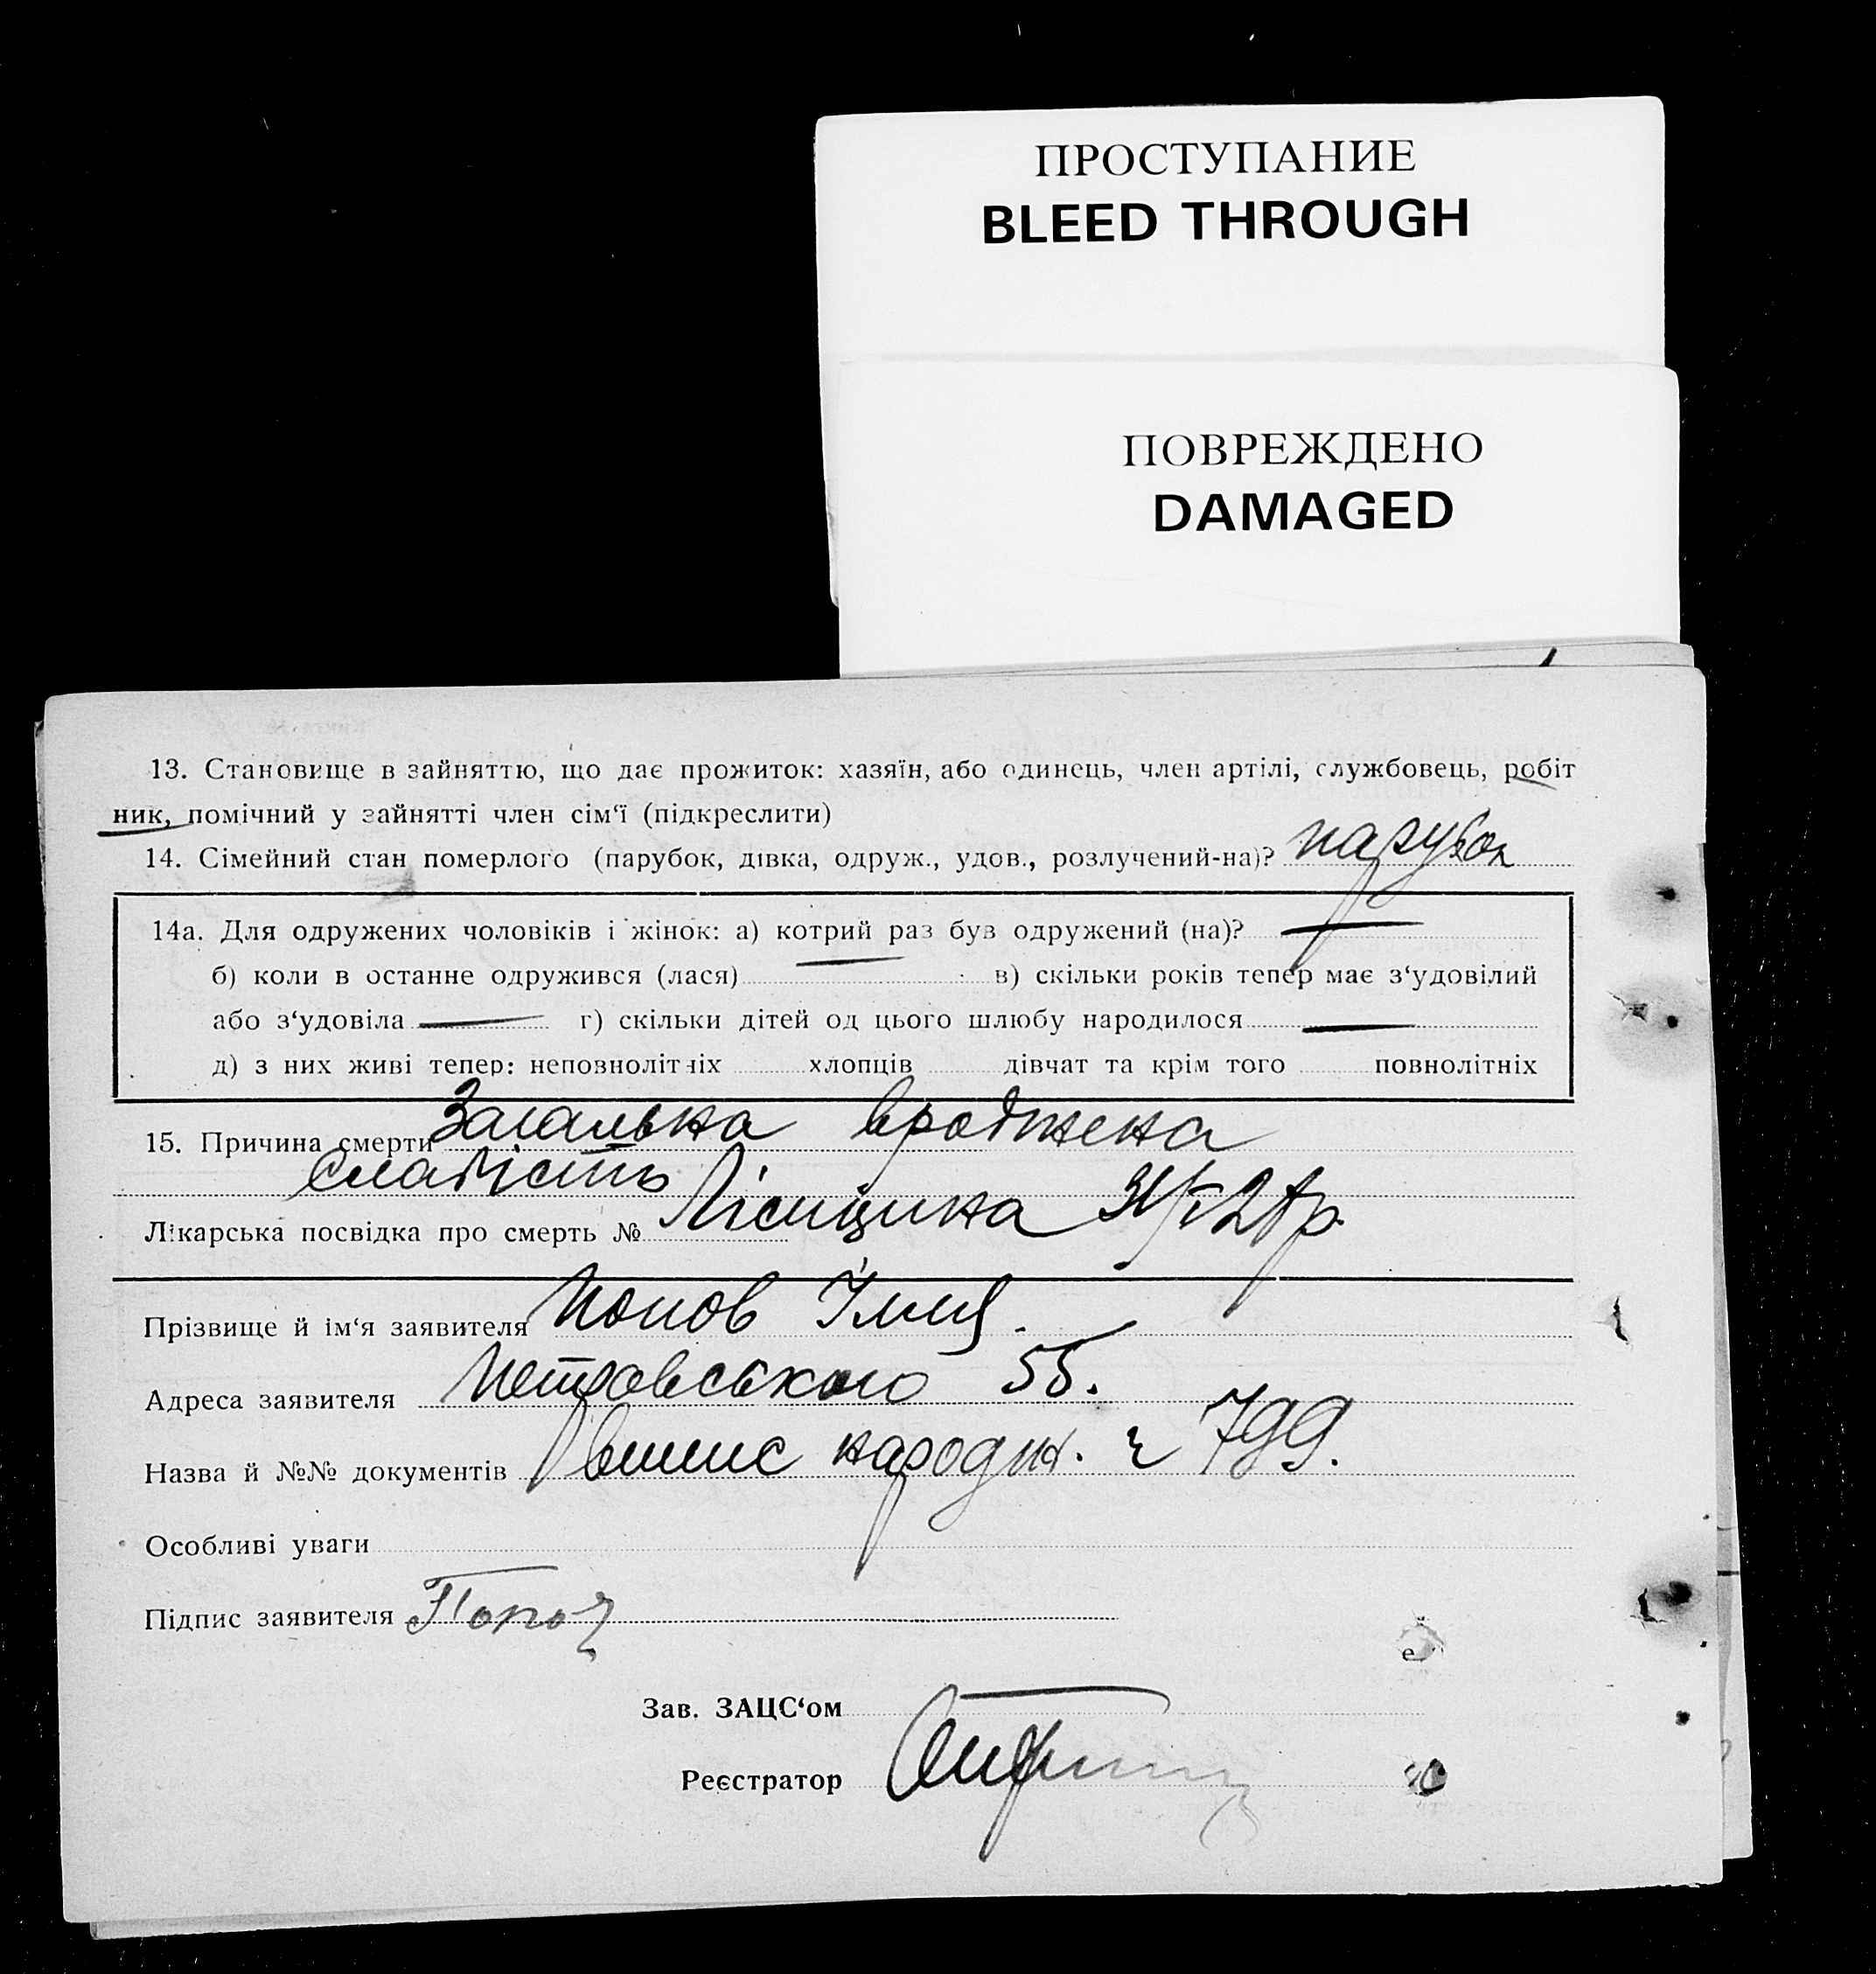 ПРОСТУПАНИЕ
BLEED THROUGH
ПОВРЕЖДЕНО
DAMAGED
13. Становище в зайняттю, що дає прожиток: хазяїн, або одинець, член артілі, службовець, робіт
ник, помічний у зайнятті член сім‘ї (підкреслити)
14. Сімейний стан померлого (парубок, дівка, одруж., удов., розлучений-на)? парубок
14а. Для одружених чоловіків і жінок: а) котрий раз був одружений (на)? —
б) коли в останне одружився (лася) — в) скільки років тепер має з‘удовілий
або з‘удовіла — г) скільки дітей од цього шлюбу народилося —
д) з них живі тепер: неповнолітніх хлопців дівчат та крім того повнолітніх
15. Причина смерти Загальна вроджена
слабість
Лікарська посвідка про смерть №
Прізвище й ім‘я заявителя Попов Ілля.
Адреса заявителя Петровського 55.
Назва й №№ документів випис народж. ч 799.
Особливі уваги
Підпис заявителя Попов
Зав. ЗАЦС‘ом
Реєстратор